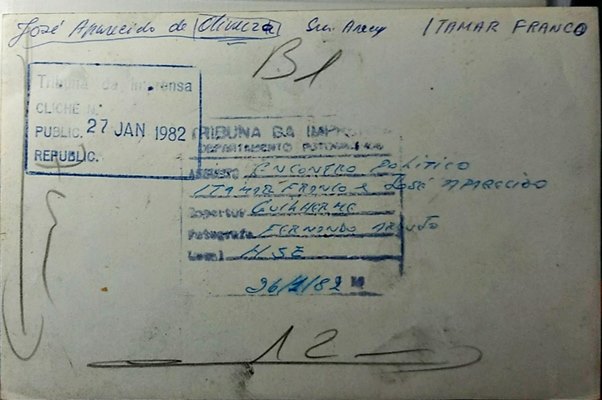 José Aparecido de Oliveira ITAMAR FRANCO
B1
Tribuna da Imprensa
CLICHE N.
PUBLIC. 27 JAN 1982
REPUBLIC.
TRIBUNA DA IMPRENSA
DEPARTAMENTO FOTOGRÁFICO
ASSUNTO ENCONTRO POLÍTICO
ITAMAR FRANCO e JOSÉ APARECIDO
Reporter GUILHERME
Fotografo FERNANDO
Local HSE
26/1/82
12